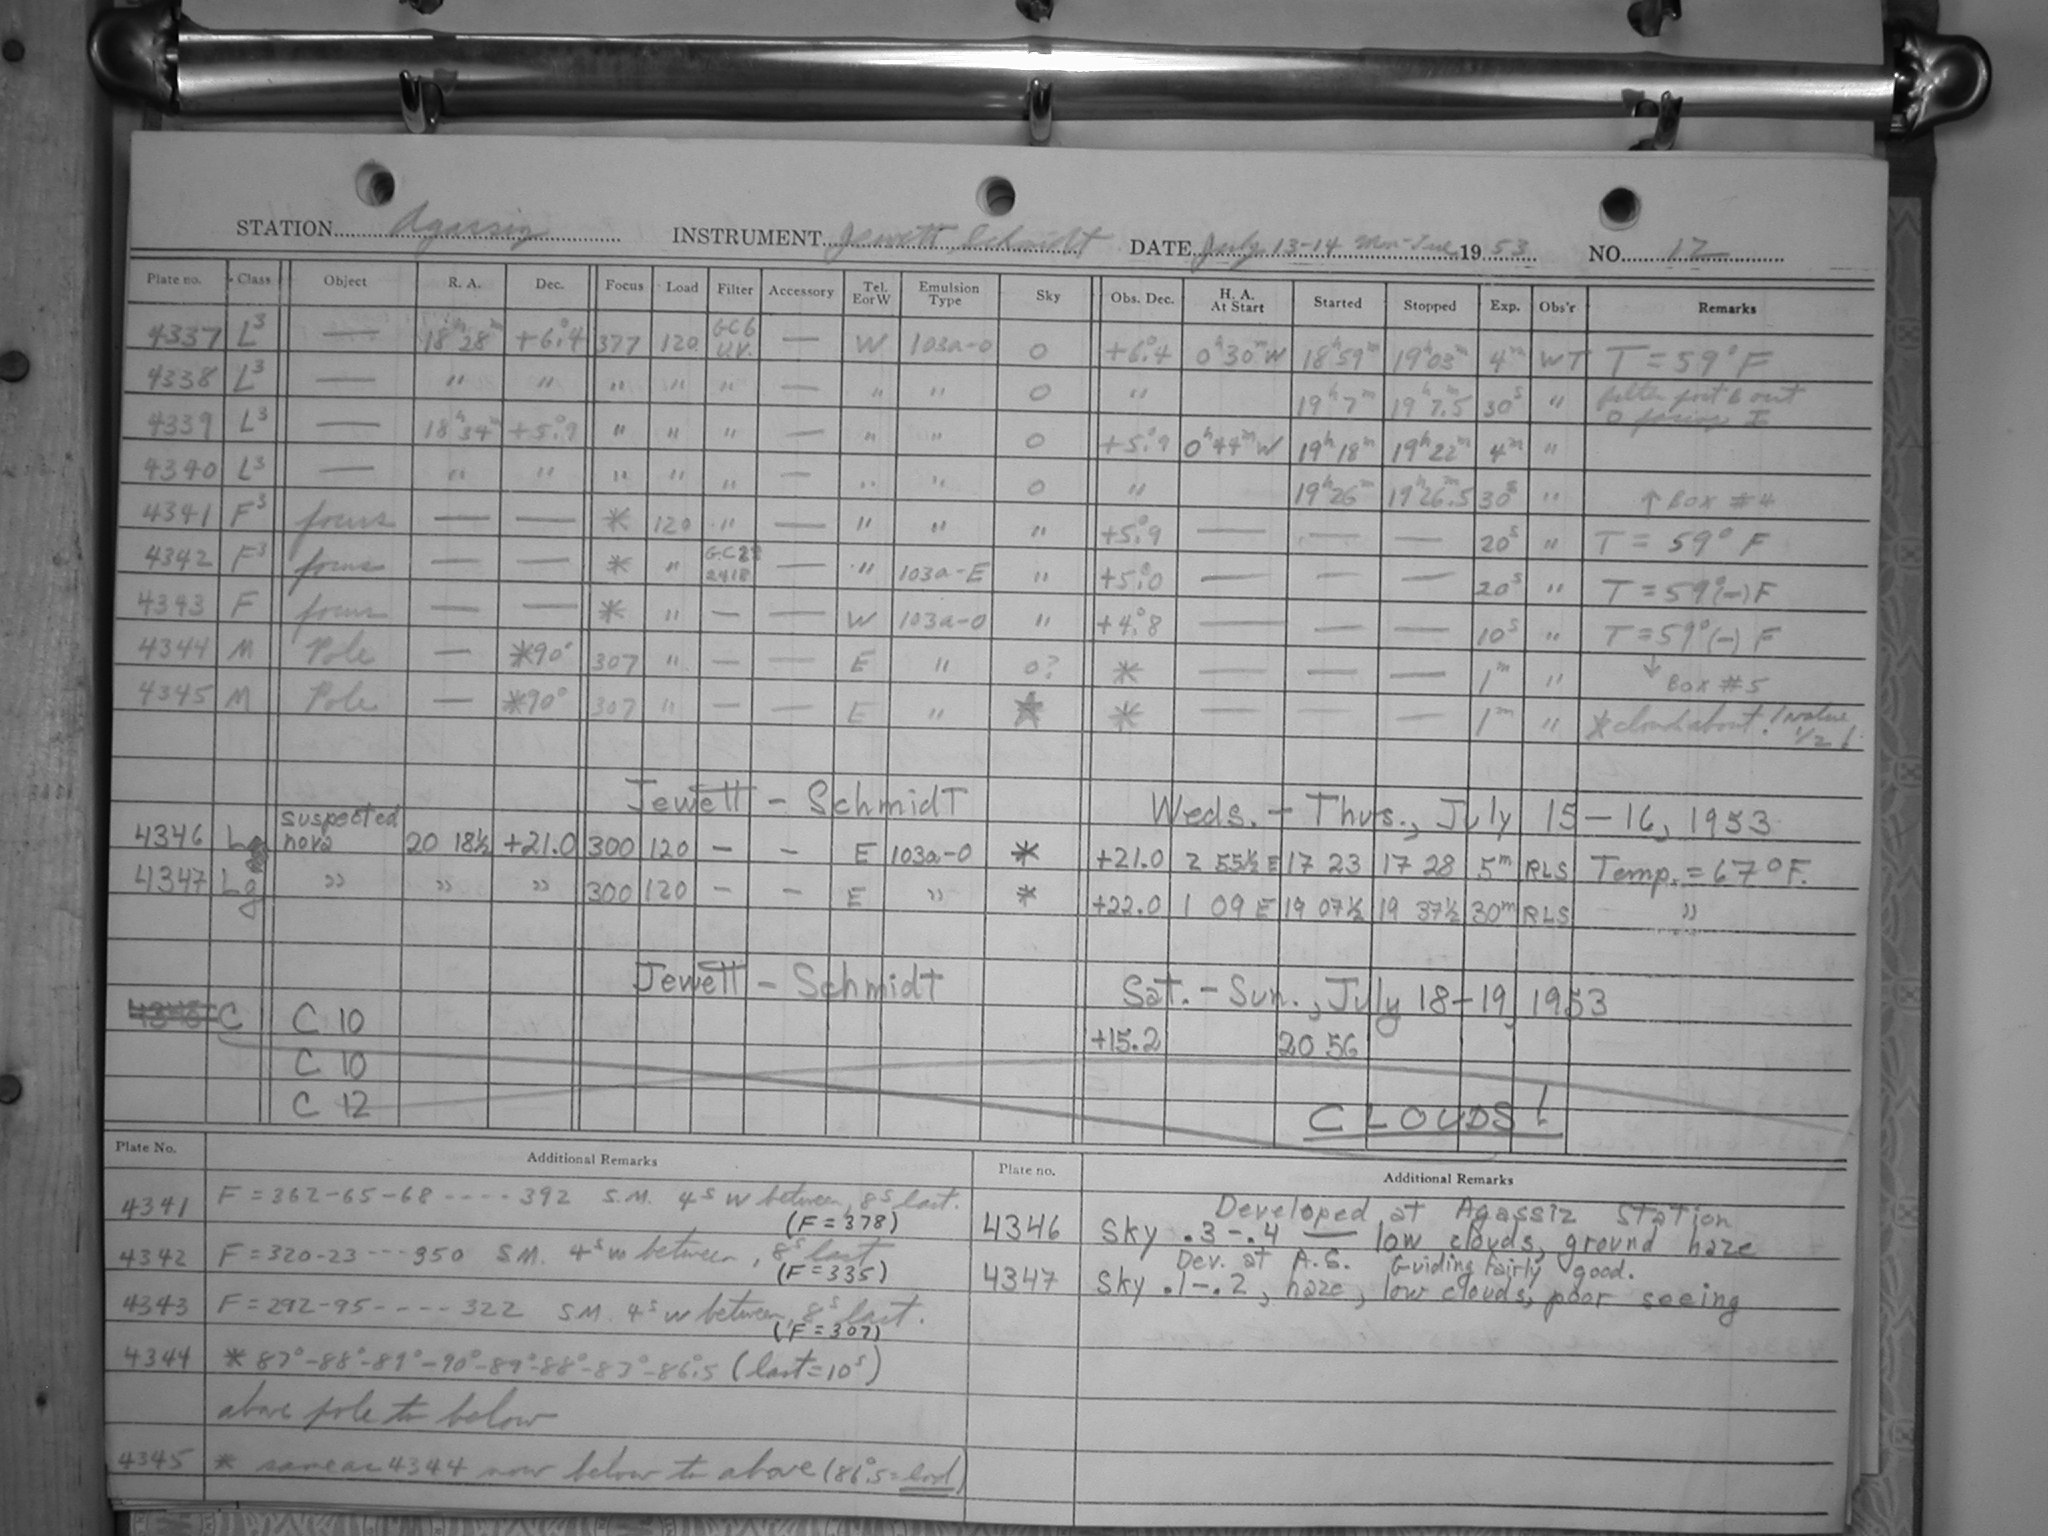 STATION Agassiz INSTRUMENT Jewett Schmidt DATE July 13-14 Mon-Tue 1953 NO. 17
Plate no. Class Object R. A. Dec. Focus Load Filter Accessory Tel. E or W Emulsion Type Sky Obs. Dec. H. A. At Start Started Stopped Exp. Obs'r Remarks
4337 L³ — 18ʰ28ᵐ +6°.4 377 120 GC6 U.V. — W 103a-0 0 +6°.4 0ʰ30ᵐW 18ʰ59ᵐ 19ʰ03ᵐ 4ᵐ WT T = 59° F
4338 L³ — " " " " " — " " 0 " 19ʰ7ᵐ 19ʰ7ᵐ.5 30ˢ " filter out
4339 L³ — 18ʰ34ᵐ +5°.9 " " " — " " 0 +5°.9 0ʰ44ᵐW 19ʰ18ᵐ 19ʰ22ᵐ 4ᵐ "
4340 L³ — " " " " " — " " 0 " 19ʰ26ᵐ 19ʰ26ᵐ.5 30ˢ " ↑ Box #4
4341 F³ focus — — * 120 " — " " " +5°.9 — — — 20ˢ " T = 59° F
4342 F³ focus — — * " 2418 — " 103a-E " +5°.0 — — — 20ˢ " T = 59°(-) F
4343 F focus — — * " — — W 103a-0 " +4°.8 — — — 10ˢ " T = 59°(-) F
4344 M Pole — *90° 307 " — — E " 0? * — — — 1ᵐ " ↓ Box #5
4345 M Pole — *90° 307 " — — E " * * — — — 1ᵐ " * cloud about 1/2
Jewett - Schmidt Weds. - Thus., July 15-16, 1953
4346 Lg suspected nova 20 18½ +21.0 300 120 - - E 103a-0 * +21.0 2 55½ E 17 23 17 28 5ᵐ RLS Temp. = 67°F.
4347 Lg " " " 300 120 - - E " * +22.0 1 09 E 19 07½ 19 37½ 30ᵐ RLS "
Jewett - Schmidt Sat. - Sun., July 18-19, 1953
C C 10 +15.2 20 56
C 10
C 12 CLOUDS!
Plate No. Additional Remarks
4341 F = 362-65-68 ---- 392 S.M. 4ˢ W between, 8ˢ last.
(F = 378)
4342 F = 320-23 --- 350 S.M. 4ˢ W between, 8ˢ last
(F = 335)
4343 F = 292-95 ---- 322 S.M. 4ˢ W between, 8ˢ last.
(F = 307)
4344 * 87°-88°-89°-90°-89°-88°-87°-86°.5 (last = 10ˢ)
above pole to below
4345 * same as 4344 now below to above (86°.5 = )
Plate no. Additional Remarks
Developed at Agassiz Station
4346 Sky .3-.4 — low clouds, ground haze
Dev. at A.S. Guiding fairly good.
4347 Sky .1-.2, haze, low clouds, poor seeing